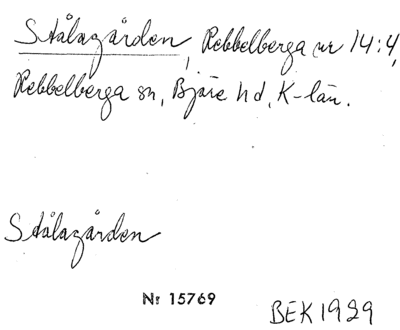 Stålagården, Rebbelberga nr 14:4,
Rebbelberga sn, Bjäre hd, K-län.
Stålagården
Nr 15769
BEK 1929